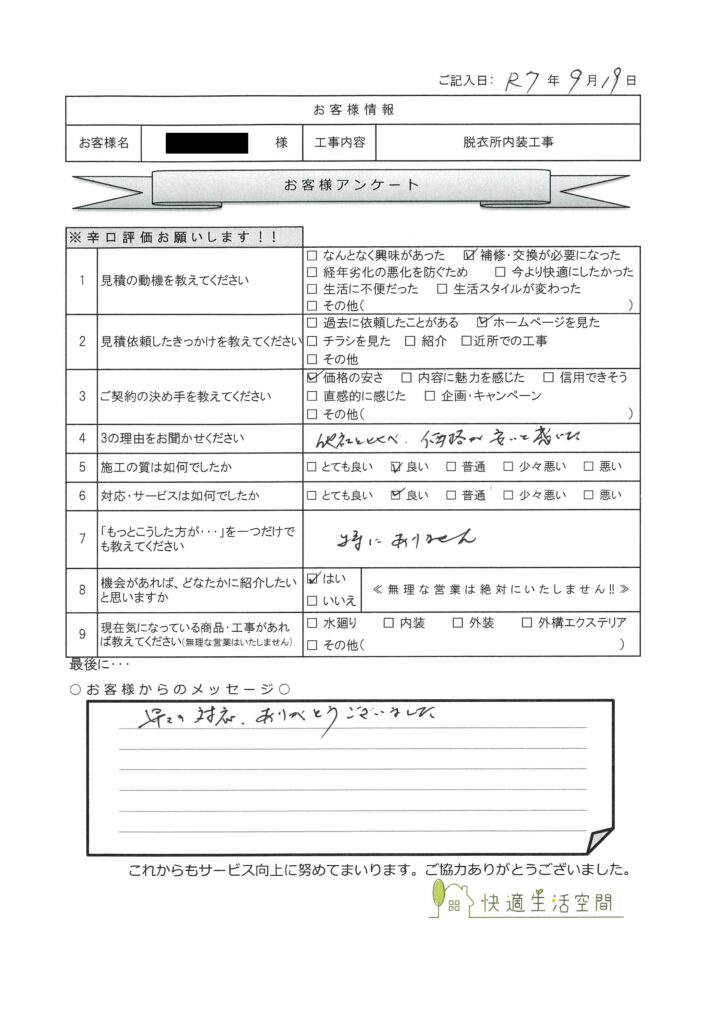 ご記入日: R7 年 9 月 19 日
お客様情報
お客様名 様 工事内容 脱衣所内装工事
お客様アンケート
※辛口評価お願いします!!
1 見積の動機を教えてください
□ なんとなく興味があった ☑ 補修・交換が必要になった
□ 経年劣化の悪化を防ぐため □ 今より快適にしたかった
□ 生活に不便だった □ 生活スタイルが変わった
□ その他( )
2 見積依頼したきっかけを教えてください
□ 過去に依頼したことがある ☑ ホームページを見た
□ チラシを見た □ 紹介 □近所での工事
□ その他
3 ご契約の決め手を教えてください
☑ 価格の安さ □ 内容に魅力を感じた □ 信用できそう
□ 直感的に感じた □ 企画・キャンペーン
□ その他( )
4 3の理由をお聞かせください 他社とくらべ、価格が安いと感じた
5 施工の質は如何でしたか □ とても良い ☑ 良い □ 普通 □ 少々悪い □ 悪い
6 対応・サービスは如何でしたか □ とても良い ☑ 良い □ 普通 □ 少々悪い □ 悪い
7 「もっとこうした方が・・・」を一つだけで
も教えてください
特にありません
8 機会があれば、どなたかに紹介したい
と思いますか
☑ はい
□ いいえ
≪無理な営業は絶対にいたしません!!≫
9 現在気になっている商品・工事があれ
ば教えてください(無理な営業はいたしません)
□ 水廻り □ 内装 □ 外装 □ 外構エクステリア
□ その他( )
最後に・・・
○お客様からのメッセージ○
早々の対応、ありがとうございました
これからもサービス向上に努めてまいります。ご協力ありがとうございました。
快適生活空間